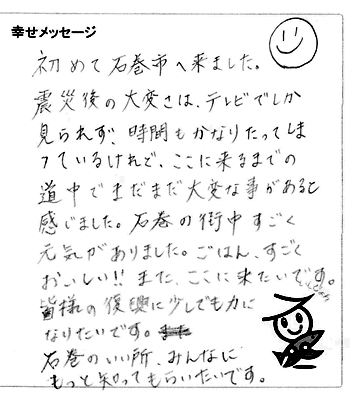 幸せメッセージ
初めて石巻市へ来ました。
震災後の大変さは、テレビでしか
見られず、時間もかなりたってしま
っているけれど、ここに来るまでの
道中でまだまだ大変な事があると
感じました。石巻の街中すごく
元気がありました。ごはん、すごく
おいしい!! また、ここに来たいです。
皆様の復興に少しでも力に
なりたいです。
石巻のいい所、みんなに
もっと知ってもらいたいです。